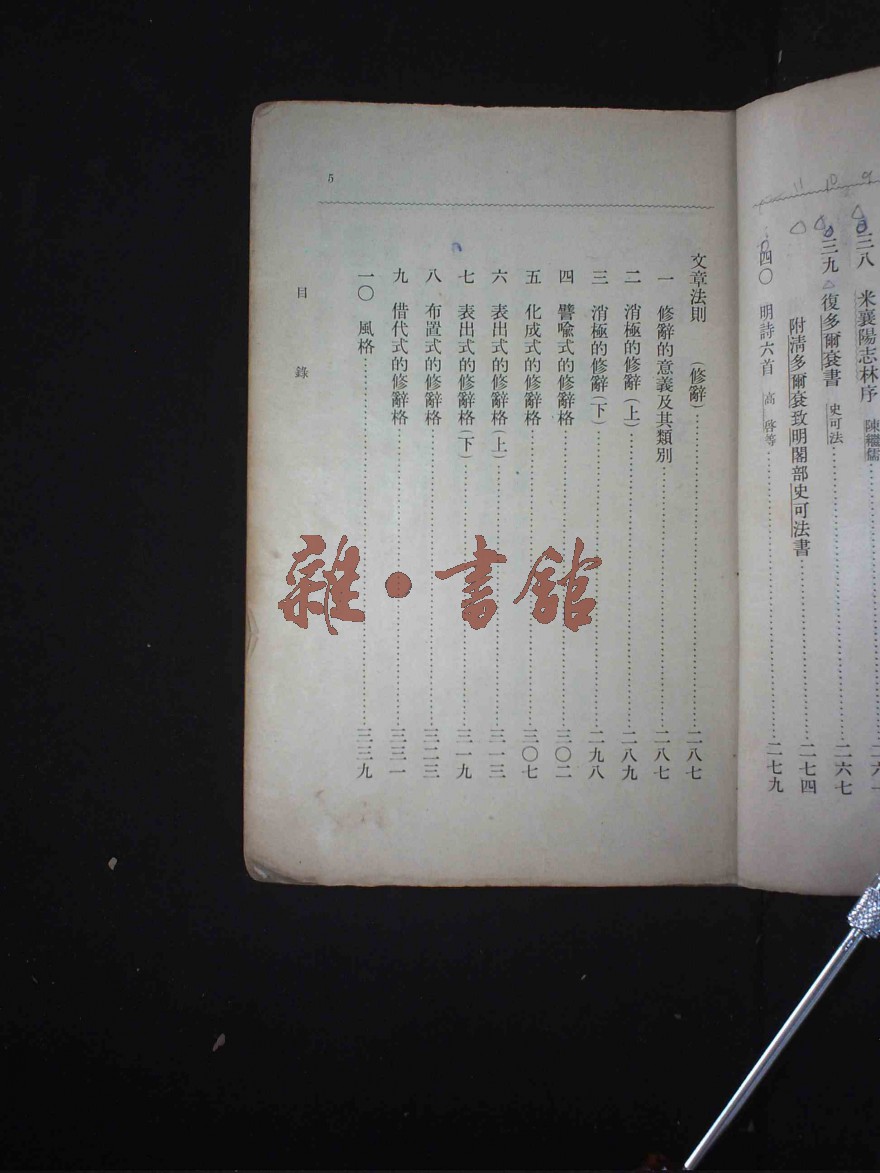 三八 米襄陽志林序 陳繼儒
三九 復多爾袞書 史可法……二六七
附清多爾袞致明閣部史可法書……二七四
四〇 明詩六首 高 啓等……二七九
文章法則 (修辭)……二八七
一 修辭的意義及其類別……二八七
二 消極的修辭(上)……二八九
三 消極的修辭(下)……二九八
四 譬喩式的修辭格……三〇二
五 化成式的修辭格……三〇七
六 表出式的修辭格(上)……三一三
七 表出式的修辭格(下)……三一九
八 布置式的修辭格……三二三
九 借代式的修辭格……三三一
一〇 風格……三三九
目 錄
5
雜·書館
11 10 9